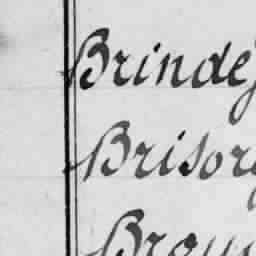 Brinde
Brisor
Brou